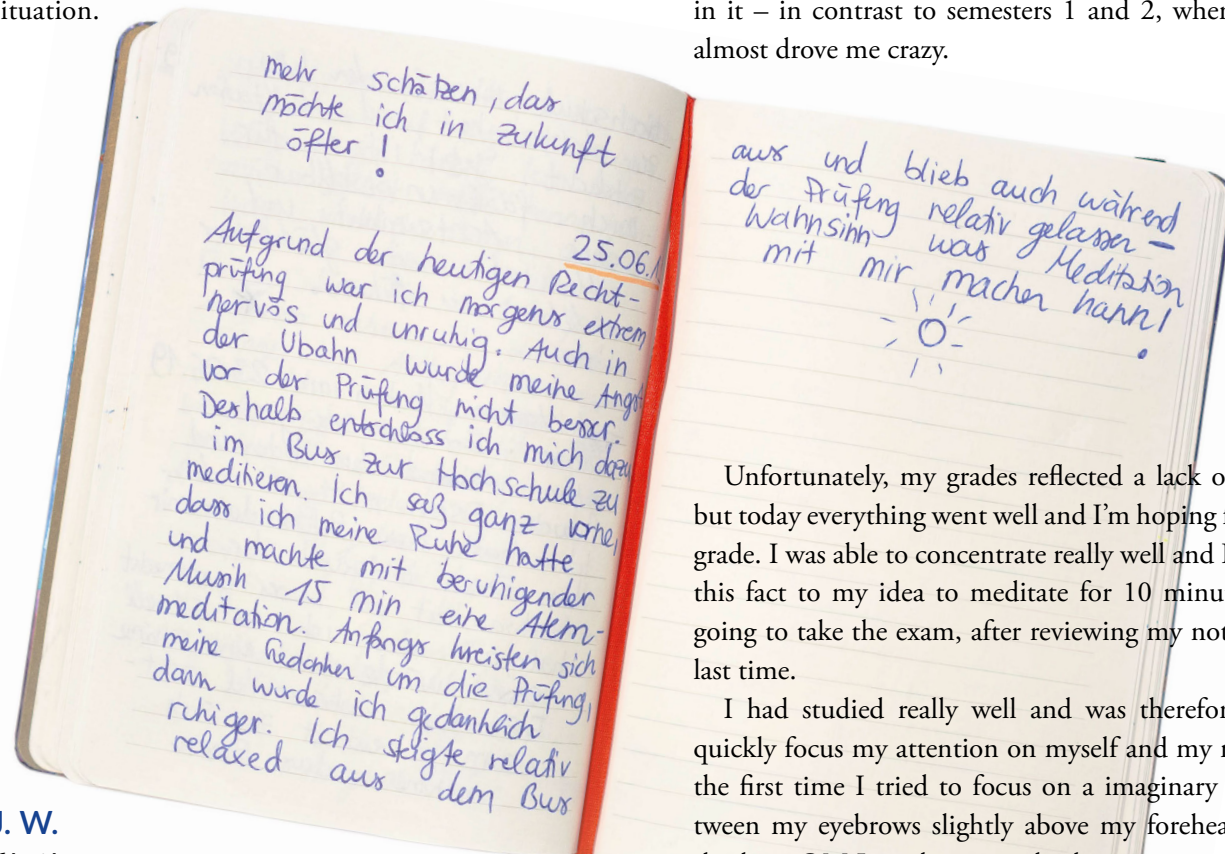 ituation.
mehr schätzen, das
möchte ich in Zukunft
öfter!
25.06.
Aufgrund der heutigen Recht-
prüfung war ich morgens extrem
nervös und unruhig. Auch in
der Ubahn wurde meine Angst
vor der Prüfung nicht besser.
Deshalb entschloss ich mich dazu
im Bus zur Hochschule zu
meditieren. Ich saß ganz vorne,
dass ich meine Ruhe hatte
und machte mit beruhigender
Musik 15 min eine Atem-
meditation. Anfangs kreisten sich
meine Gedanken um die Prüfung,
dann wurde ich gedanklich
ruhiger. Ich steigte relativ
relaxed aus dem Bus
J. W.
in it – in contrast to semesters 1 and 2, wher
almost drove me crazy.
aus und blieb auch während
der Prüfung relativ gelassen –
Wahnsinn was Meditation
mit mir machen kann!
Unfortunately, my grades reflected a lack o
but today everything went well and I'm hoping
grade. I was able to concentrate really well and I
this fact to my idea to meditate for 10 minu
going to take the exam, after reviewing my not
last time.
I had studied really well and was therefor
quickly focus my attention on myself and my
the first time I tried to focus on a imaginary
tween my eyebrows slightly above my forehea